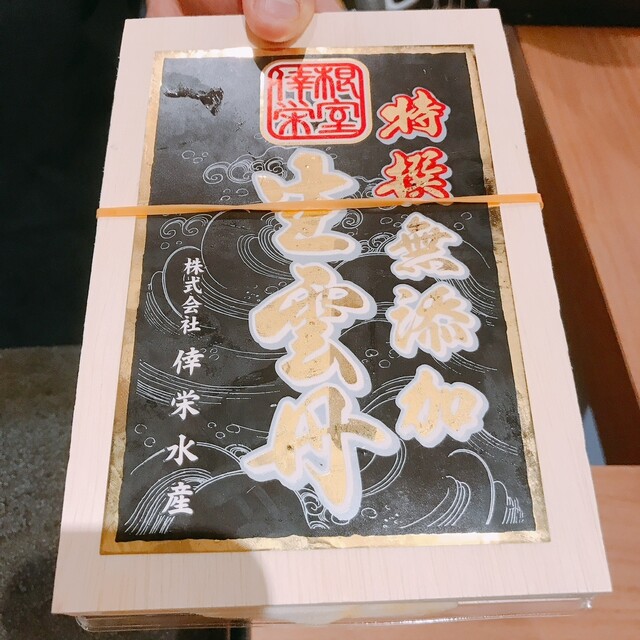 特撰
無添加
根室
倖栄
生雲丹
株式会社 倖栄水産